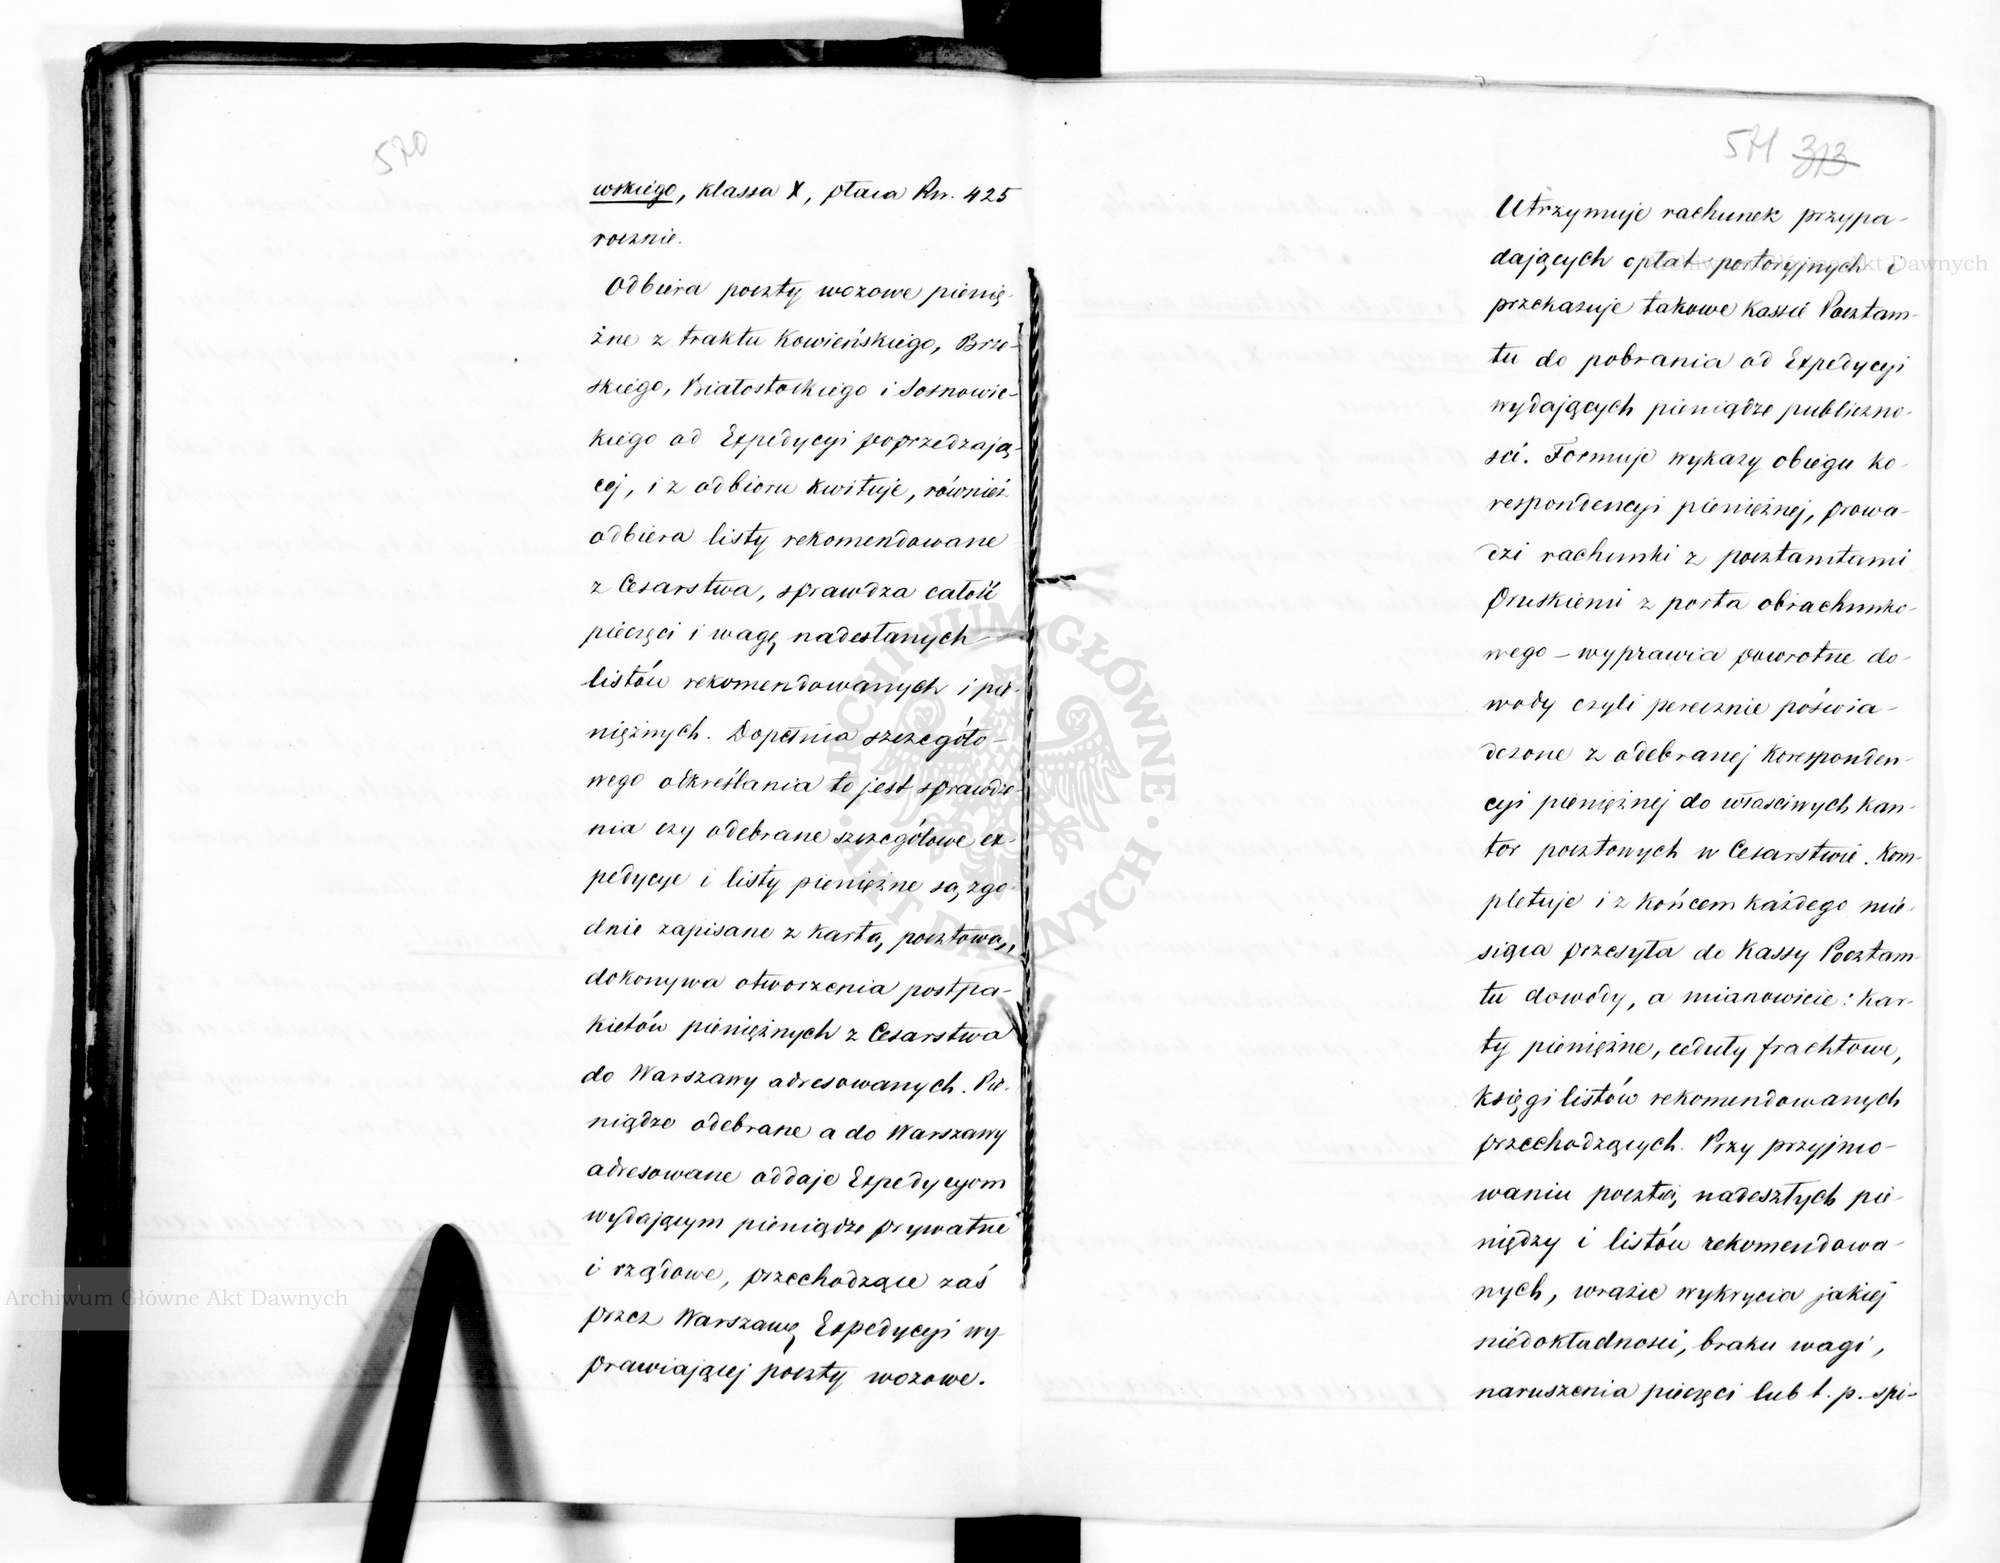 570
wskiego, klassa X, płaca Rsr. 425
rocznie.
Odbiera poczty wozowe pienię-
żne z traktu Kowieńskiego, Brze-
skiego, Białostockiego i Sosnowic-
kiego od Expedycyi poprzedzają-
cej, i z odbioru kwituje, również
odbiera listy rekomendowane
z Cesarstwa, sprawdza całość
pieczęci i wagę nadesłanych
listów rekomendowanych i pie-
niężnych. Dopełnia szczegóło-
wego określania to jest sprawdze-
nia czy odebrane szczegółowe ex-
pedycye i listy pieniężne są zgo-
dnie zapisane z kartą pocztową,
dokonywa otworzenia postpa-
kietów pieniężnych z Cesarstwa
do Warszawy adresowanych. Pie-
niądze odebrane a do Warszawy
adresowane oddaje Expedycyom
wydającym pieniądze prywatne
i rządowe, przechodzące zaś
przez Warszawę Expedycyi wy-
prawiającej poczty wozowe.
571 313
Utrzymuje rachunek przypa-
dających opłat portoryjnych i
przekazuje takowe Kassie Pocztam-
tu do pobrania od Expedycyi
wydających pieniądze publiczno-
sci. Formuje wykazy obiegu ko-
respondencyi pieniężnej, prowa-
dzi rachunki z pocztamtami
Pruskiemi z porta obrachunko-
wego – wyprawia powrotne do-
wody czyli perecznie poświa-
dczone z odebranej korresponden-
cyi pieniężnej do właściwych kan-
tor pocztowych w Cesarstwie. Kom-
pletuje i z końcem każdego mie-
siąca przesyła do Kassy Pocztam-
tu dowody, a mianowicie: kar-
ty pieniężne, ceduły frachtowe,
księgi listów rekomendowanych
przechodzących. Przy przyjmo-
waniu pocztą nadeszłych pie-
niędzy i listów rekomendowa-
nych, wrazie wykrycia jakiej
niedokładnosci, braku wagi,
naruszenia pieczęci lub t. p. spi-
Archiwum Główne Akt Dawnych
Archiwum Główne Akt Dawnych
ARCHIWUM GŁÓWNE · AKT DAWNYCH ·